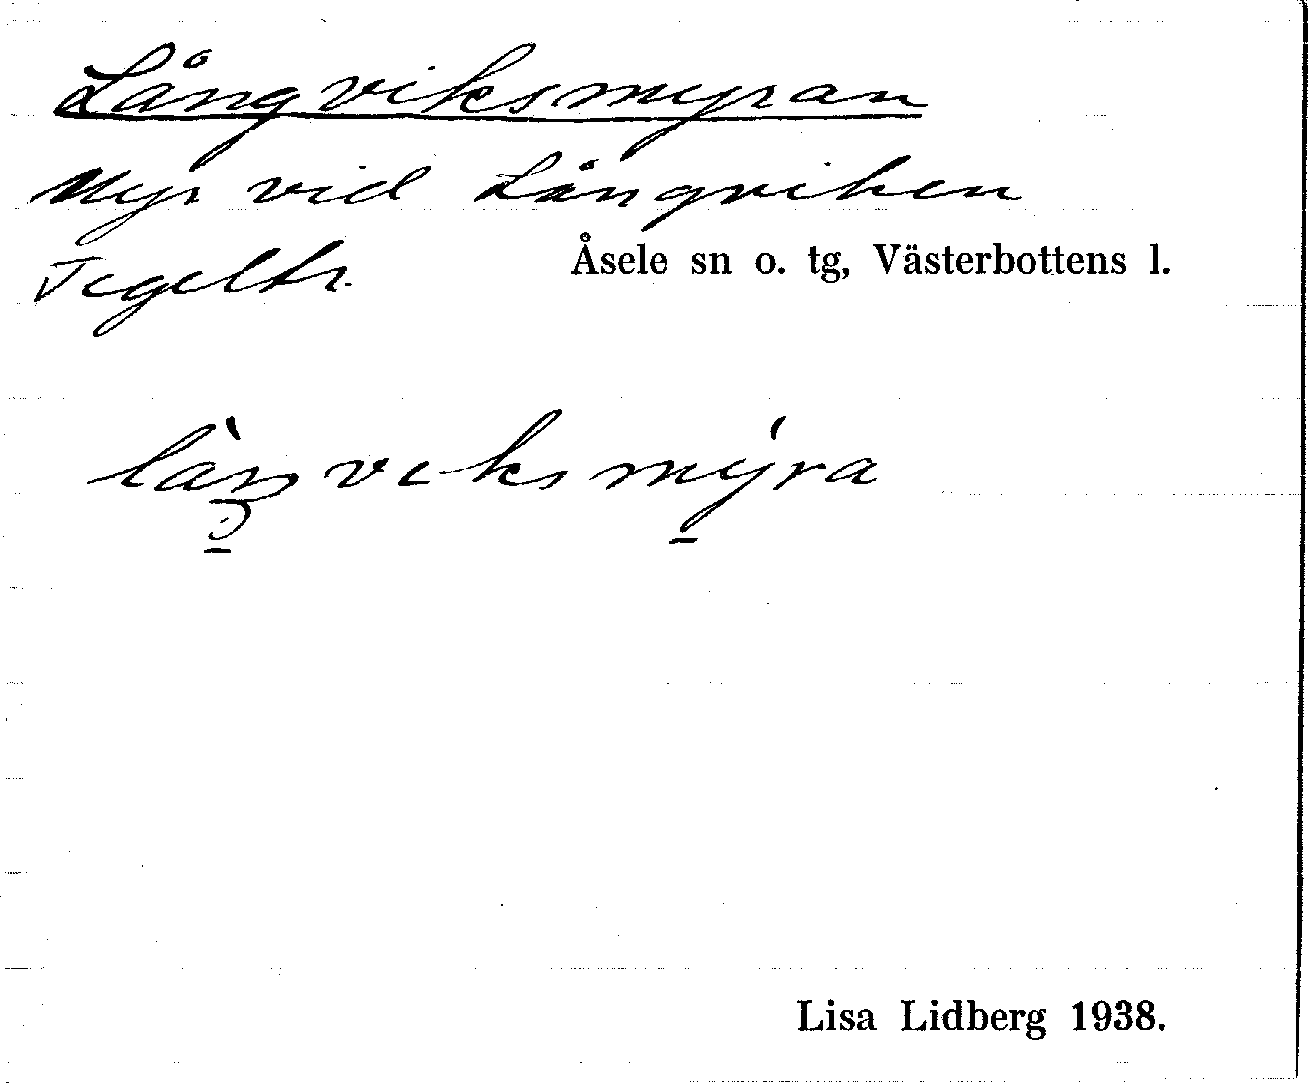 Långviksmyran
Myr vid Långviken
Tegeltr. Åsele sn o. tg, Västerbottens l.
Lisa Lidberg 1938.